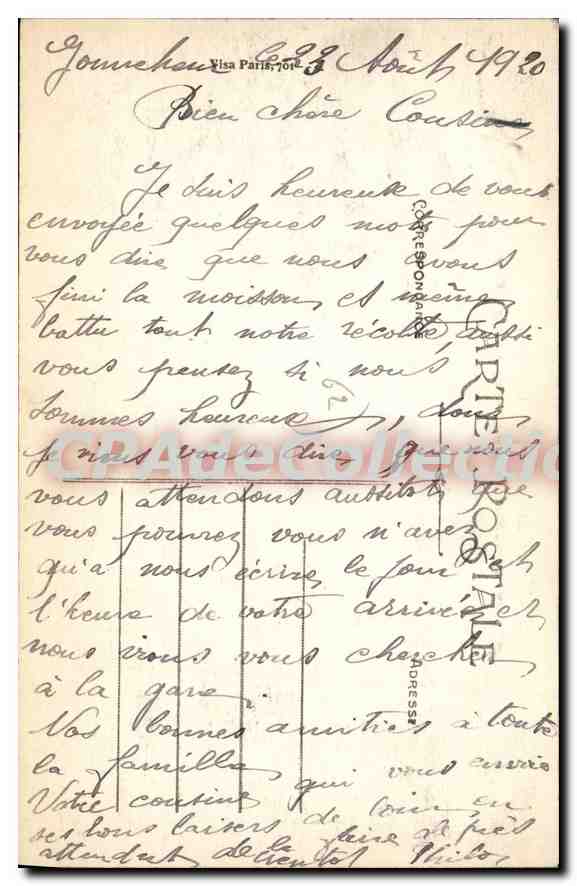 le 23 Août 1920
Visa Paris, 701
Bien chère Cousine
Je suis heureuse de vous
envoyée quelques mots pour
vous dire que nous avons
fini la moisson et même
battu tout notre récolte, aussi
vous pensez si nous
sommes heureux, donc
je viens vous dire, que nous
vous attendons aussitôt que
vous pourrez vous n'avez
qu'a nous écrire le jour et
l'heure de votre arrivée et
nous irons vous chercher
à la gare.
Nos bonnes amitiés à toute
la famille
Votre cousine qui vous envoie
ses bons baisers de loin en
attendant de la faire de près
bientôt
CORRESPONDANCE
CARTE POSTALE
ADRESSE
CPAdeCollection